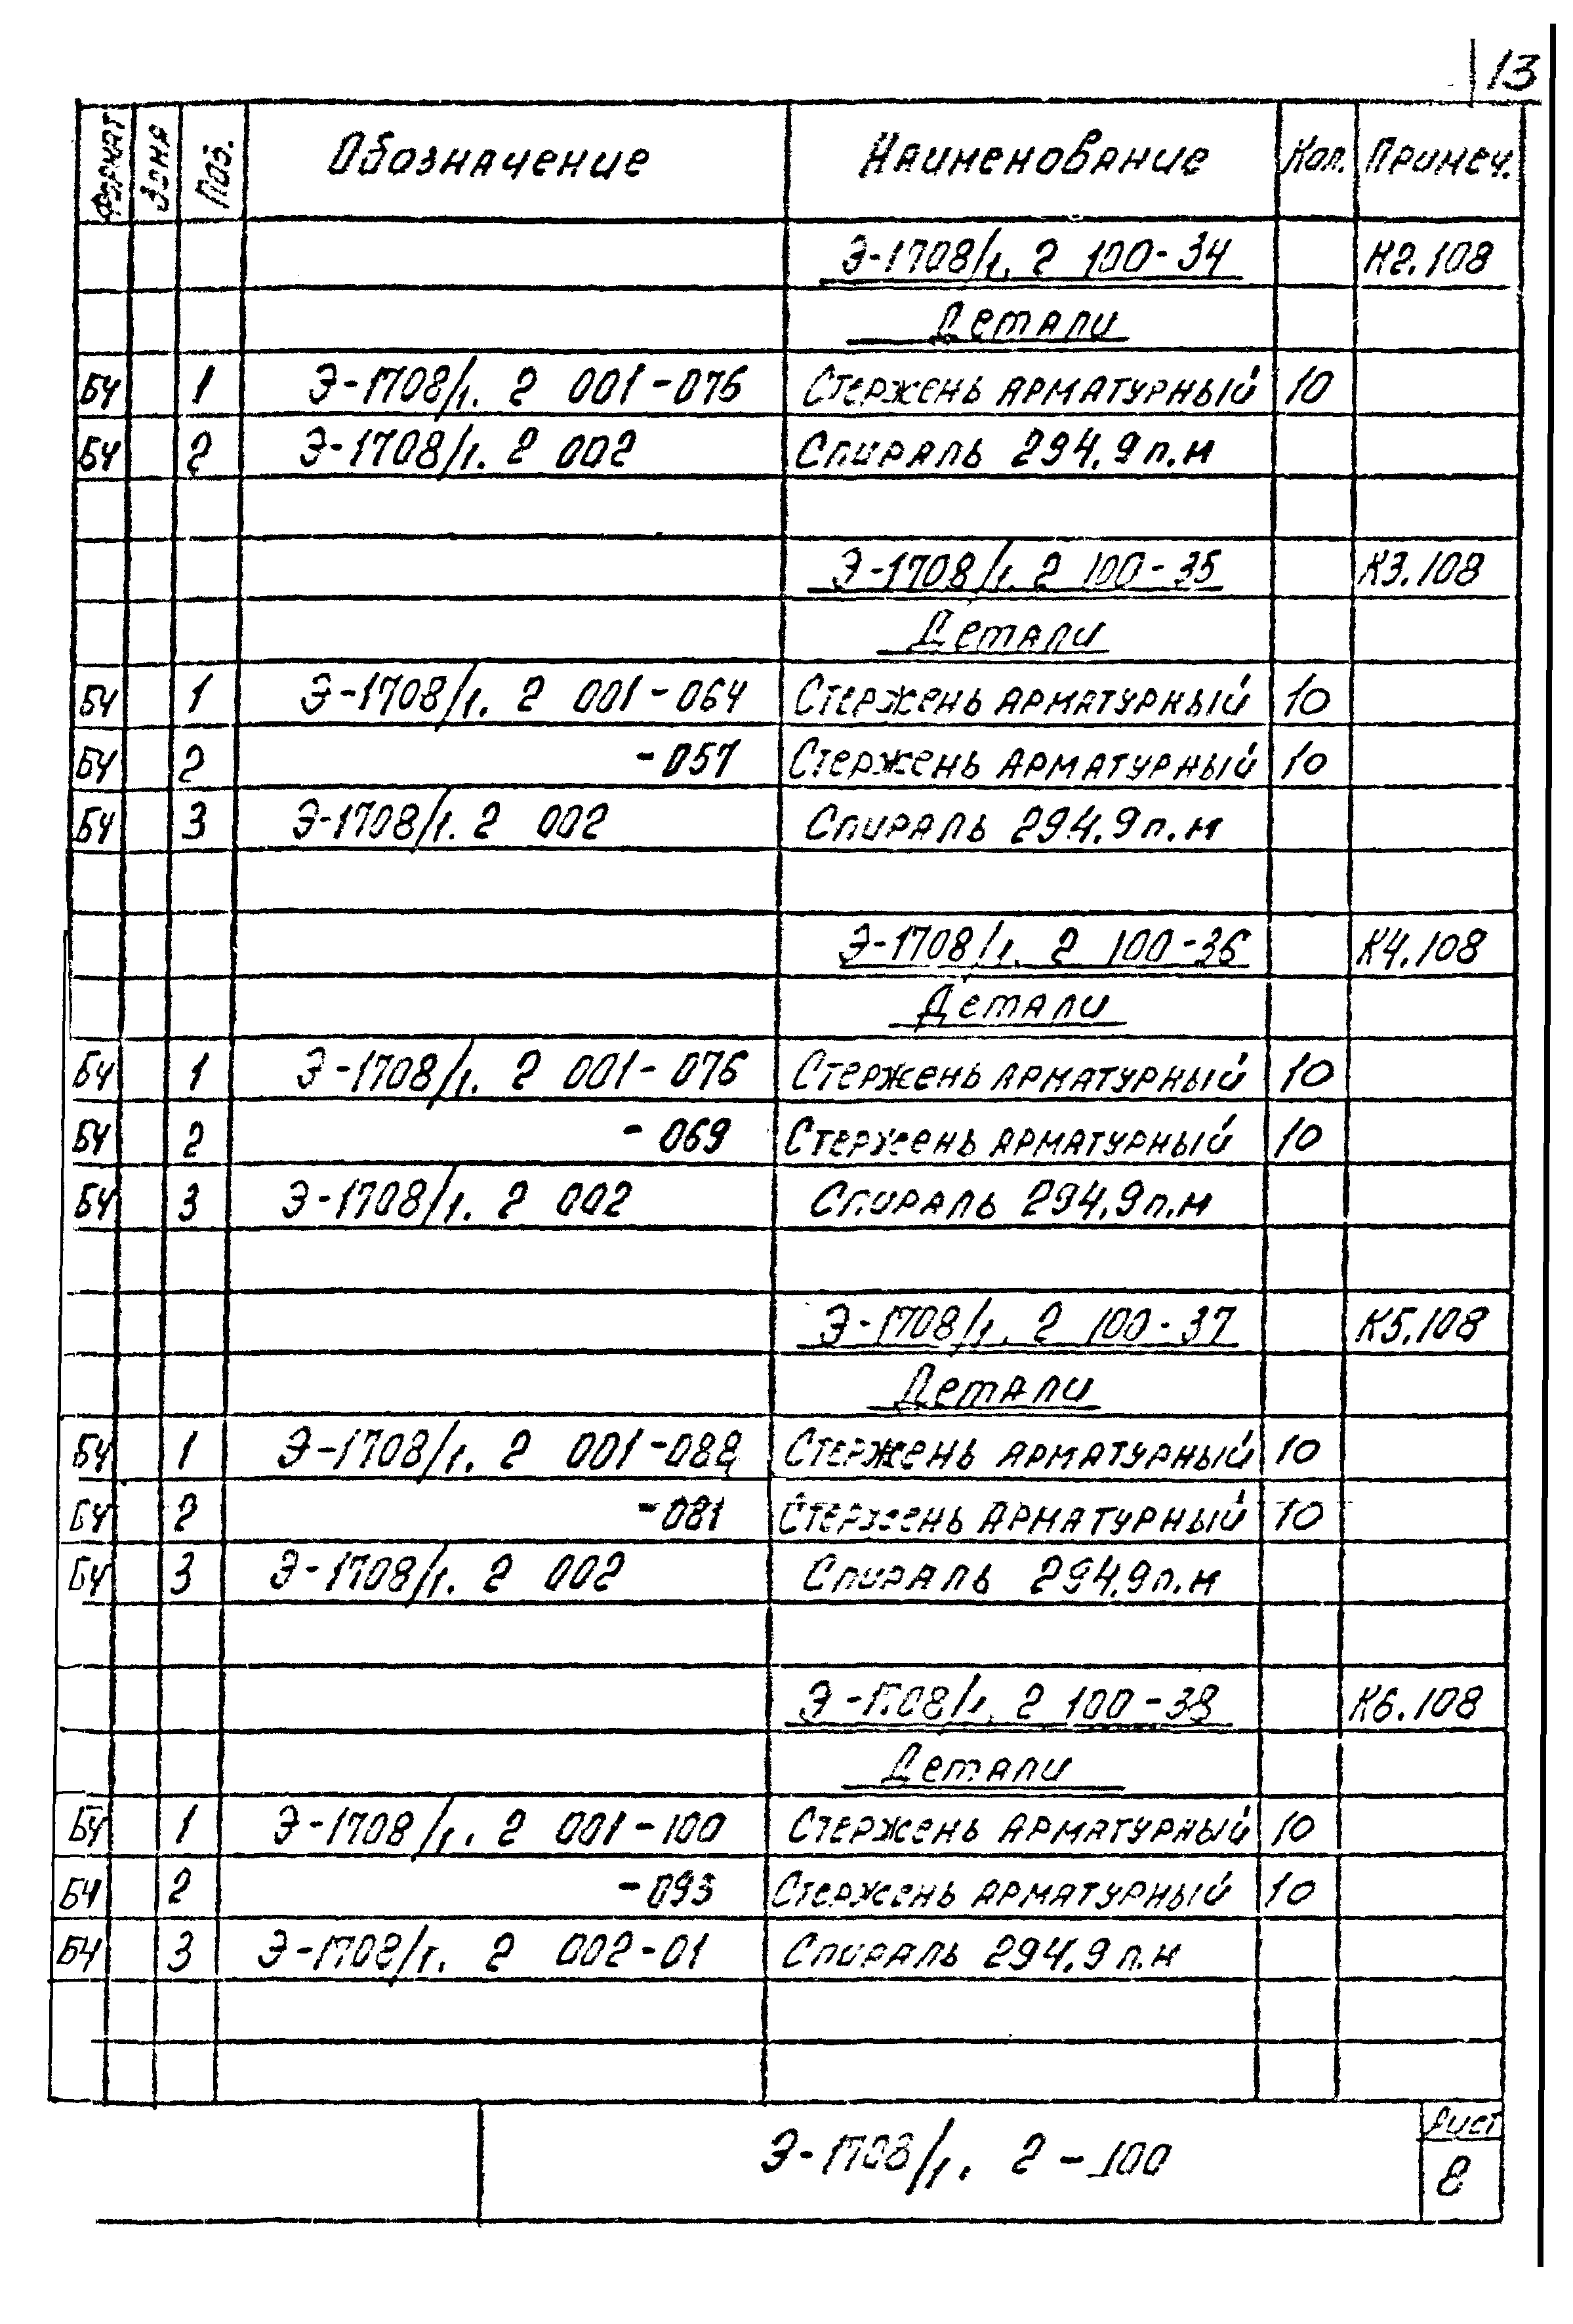 13
Формат Зона Поз. Обозначение Наименование Кол. Примеч.
Э-1708/1. 2 100-34 К2.108
Детали
БЧ 1 Э-1708/1. 2 001-076 Стержень арматурный 10
БЧ 2 Э-1708/1. 2 002 Спираль 294.9 п.м
Э-1708/1. 2 100-35 К3.108
Детали
БЧ 1 Э-1708/1. 2 001-064 Стержень арматурный 10
БЧ 2 -057 Стержень арматурный 10
БЧ 3 Э-1708/1. 2 002 Спираль 294.9 п.м
Э-1708/1. 2 100-36 К4.108
Детали
БЧ 1 Э-1708/1. 2 001-076 Стержень арматурный 10
БЧ 2 -069 Стержень арматурный 10
БЧ 3 Э-1708/1. 2 002 Спираль 294.9 п.м
Э-1708/1. 2 100-37 К5.108
Детали
БЧ 1 Э-1708/1. 2 001-088 Стержень арматурный 10
БЧ 2 -081 Стержень арматурный 10
БЧ 3 Э-1708/1. 2 002 Спираль 294.9 п.м
Э-1708/1. 2 100-38 К6.108
Детали
БЧ 1 Э-1708/1. 2 001-100 Стержень арматурный 10
БЧ 2 -093 Стержень арматурный 10
БЧ 3 Э-1708/1. 2 002-01 Спираль 294.9 п.м
Э-1708/1. 2-100
Лист
8